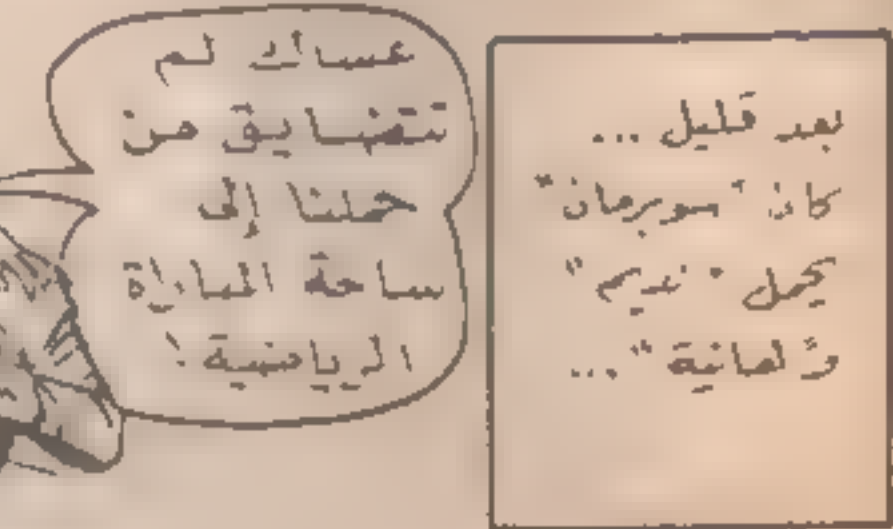 بعد قليل ...
كان "سوبرمان"
يحمل "نديم"
و"لمانية" ...
عساك لم
تتضايق من
حملنا إلى
ساحة المباراة
الرياضية !